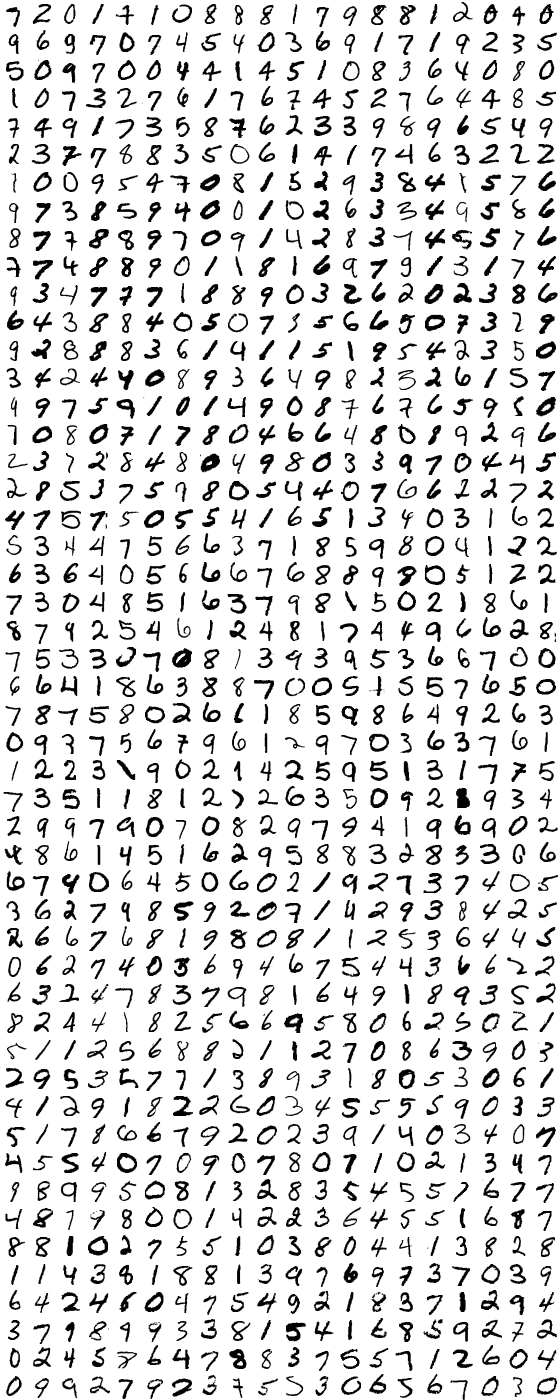 7 2 0 1 7 1 0 8 8 8 1 7 9 8 8 1 2 0 4 0
9 6 9 7 0 7 4 5 4 0 3 6 9 1 7 1 9 2 3 5
5 0 9 7 0 0 4 4 1 4 5 1 0 8 3 6 4 0 8 0
1 0 7 3 2 7 6 1 7 6 7 4 5 2 7 6 4 4 8 5
7 4 9 1 7 3 5 8 7 6 2 3 3 9 8 9 6 5 4 9
2 3 7 7 8 8 3 5 0 6 1 4 1 7 4 6 3 2 2 2
1 0 0 9 5 4 7 0 8 1 5 2 9 3 8 4 1 5 7 6
9 7 3 8 5 9 4 0 0 1 0 2 6 3 3 4 9 5 8 6
8 7 7 8 8 9 7 0 9 1 4 2 8 3 7 4 5 5 7 6
7 7 4 8 8 9 0 1 1 8 1 6 9 7 9 1 3 1 7 4
9 3 4 7 7 7 1 8 8 9 0 3 2 6 2 0 2 3 8 6
6 4 3 8 8 4 0 5 0 7 3 5 6 6 5 0 7 3 2 9
9 2 8 8 8 3 6 1 4 1 1 5 1 9 5 4 2 3 5 0
3 4 2 4 4 0 8 9 3 6 4 9 8 2 3 2 6 1 5 7
9 9 7 5 9 1 0 1 4 9 0 8 7 6 7 6 5 9 5 0
7 0 8 0 7 1 7 8 0 4 6 6 4 8 0 8 9 2 9 6
2 3 7 2 8 4 8 0 4 9 8 0 3 3 9 7 0 4 4 5
2 8 5 3 7 5 9 8 0 5 4 4 0 7 6 6 2 2 7 2
4 7 5 7 5 0 5 5 4 1 6 5 1 3 4 0 3 1 6 2
5 3 4 4 7 5 6 6 3 7 1 8 5 9 8 0 4 1 2 2
6 3 6 4 0 5 6 6 6 7 6 8 8 9 8 0 5 1 2 2
7 3 0 4 8 5 1 6 3 7 9 8 1 5 0 2 1 8 6 1
8 7 9 2 5 4 6 1 2 4 8 1 7 4 4 9 6 6 2 8
7 5 3 3 0 7 0 8 1 3 9 3 9 5 3 6 6 7 0 0
6 6 4 1 8 6 3 8 8 7 0 0 5 1 5 5 7 6 5 0
7 8 7 5 8 0 2 6 6 1 8 5 9 8 6 4 9 2 6 3
0 9 3 7 5 6 7 9 6 1 2 9 7 0 3 6 3 7 6 1
1 2 2 3 1 9 0 2 1 4 2 5 9 5 1 3 1 7 7 5
7 3 5 1 1 8 1 2 2 2 6 3 5 0 9 2 8 9 3 4
2 9 9 7 9 0 7 0 8 2 9 7 9 4 1 9 6 9 0 2
4 8 6 1 4 5 1 6 2 9 5 8 8 3 2 8 3 3 6 6
6 7 9 0 6 4 5 0 6 0 2 1 9 2 7 3 7 4 0 5
3 6 2 7 9 8 5 9 2 0 7 1 4 2 9 3 8 4 2 5
2 6 6 7 6 8 1 9 8 0 8 1 1 2 5 3 6 4 4 5
0 6 2 7 4 0 3 6 9 4 6 7 5 4 4 3 6 6 2 2
6 3 2 4 7 8 3 7 9 8 1 6 4 9 1 8 9 3 5 2
8 2 4 4 1 8 2 5 6 6 9 5 8 0 6 2 5 0 2 1
5 1 1 2 5 6 8 8 2 1 1 2 7 0 8 6 3 9 0 3
2 9 5 3 5 7 7 1 3 8 9 3 1 8 0 5 3 0 6 1
4 1 2 9 1 8 2 2 6 0 3 4 5 5 5 5 9 0 3 3
5 1 7 8 6 6 7 9 2 0 2 3 9 1 4 0 3 4 0 7
4 5 5 4 0 7 0 9 0 7 8 0 7 1 0 2 1 3 4 7
9 8 9 9 5 0 8 1 3 2 8 3 5 4 5 5 7 6 7 7
4 8 7 9 8 0 0 1 4 2 2 3 6 4 5 5 1 6 8 7
8 8 1 0 2 7 5 5 1 0 3 8 0 4 4 1 3 8 2 8
1 1 4 3 8 1 8 8 1 3 9 7 6 9 7 3 7 0 3 9
6 4 2 4 6 0 4 7 5 4 9 2 1 8 3 7 1 2 9 4
3 7 9 8 9 9 3 3 8 1 5 4 1 6 8 5 9 2 7 2
0 2 4 5 8 6 4 7 8 8 3 7 5 5 7 1 2 6 0 4
0 9 9 2 7 9 2 3 7 5 5 3 0 6 5 6 7 0 3 0